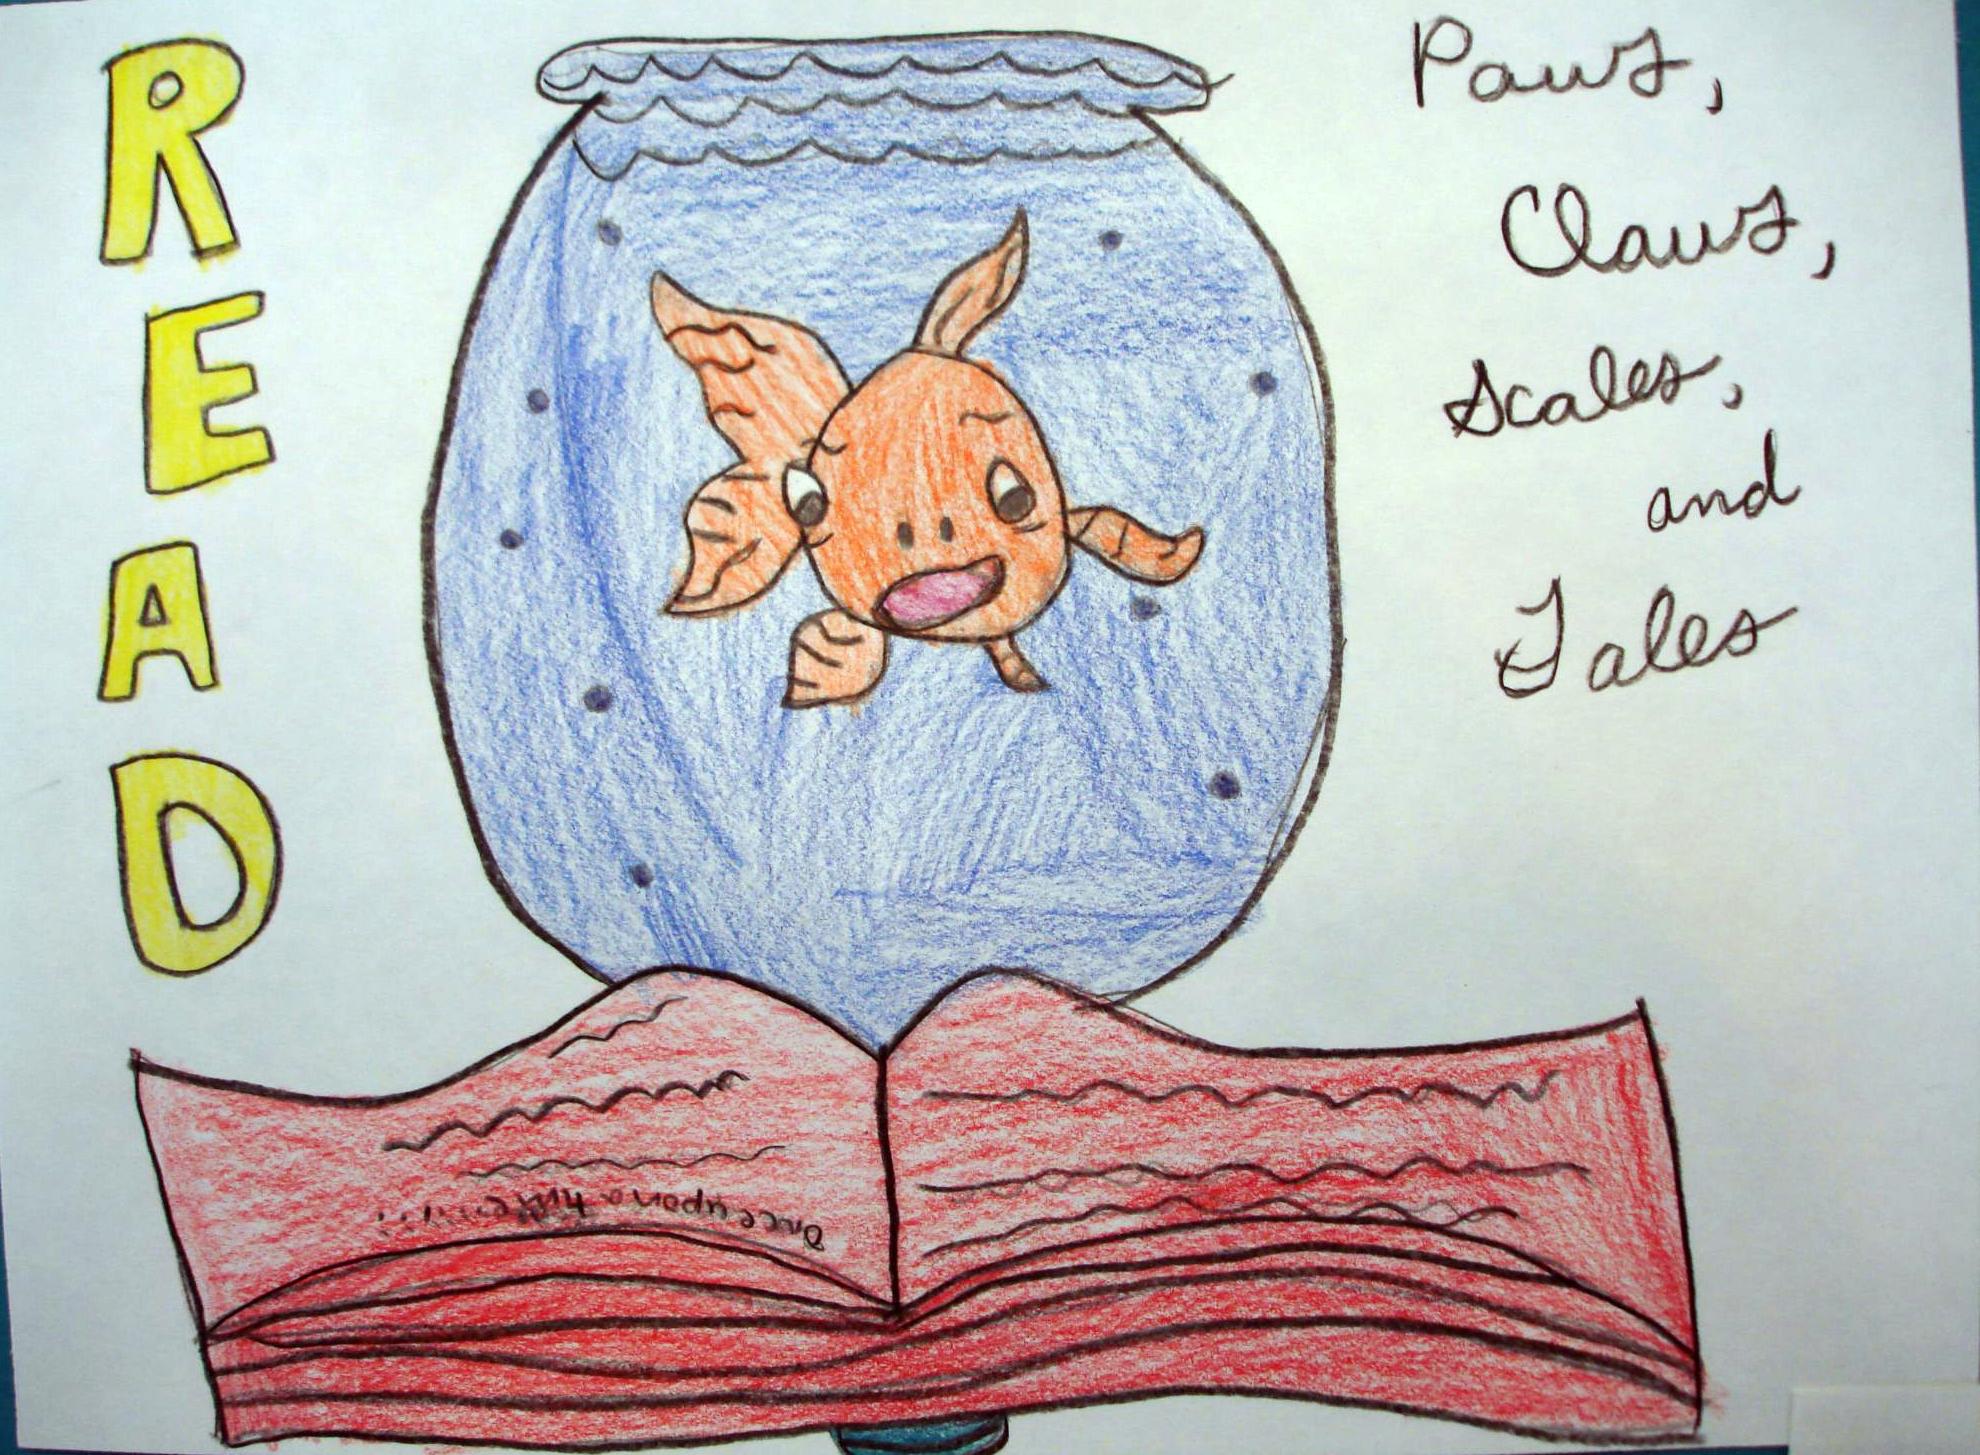 READ
Paws,
Claws,
Scales,
and
Tales
Once upon a